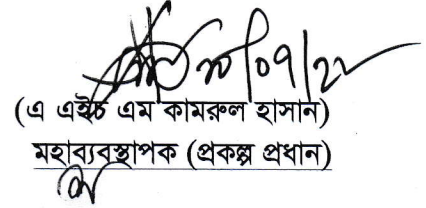 (এ এইচ এম কামরুল হাসান)
মহাব্যবস্থাপক (প্রকল্প প্রধান)